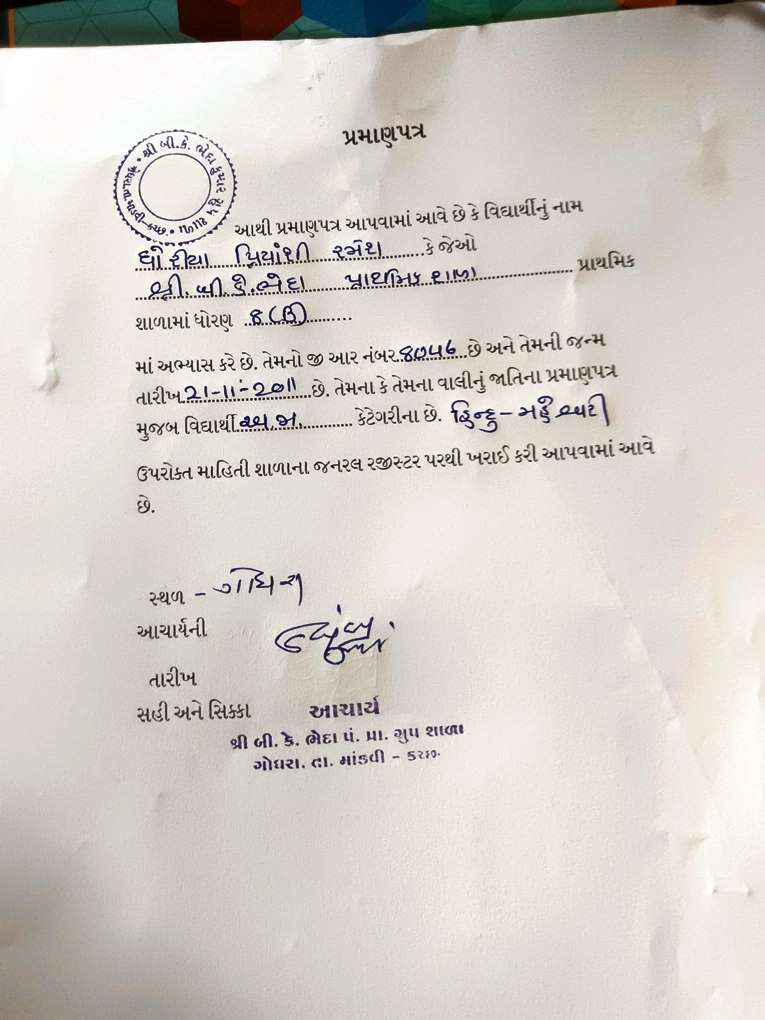 પ્રમાણપત્ર
શ્રી બી.કે. ભેદા કુમાર ગ્રુપ શાળા
આથી પ્રમાણપત્ર આપવામાં આવે છે કે વિદ્યાર્થીનું નામ
ધોરીયા પ્રિયાંશી રમેશ કે જેઓ
શ્રી. બી. કે. ભેદા પ્રાથમિક શાળા પ્રાથમિક
શાળામાં ધોરણ ૬ (B)
માં અભ્યાસ કરે છે. તેમનો જી આર નંબર ૪૦૫૬ છે અને તેમની જન્મ
તારીખ ૨૧-૧૧-૨૦૧૧ છે. તેમના કે તેમના વાલીનું જાતિના પ્રમાણપત્ર
મુજબ વિદ્યાર્થી અ.જા. કેટેગરીના છે. હિન્દુ - મહેશ્વરી
ઉપરોક્ત માહિતી શાળાના જનરલ રજીસ્ટર પરથી ખરાઈ કરી આપવામાં આવે
છે.
સ્થળ - ગોધરા
આચાર્યની
તારીખ
સહી અને સિક્કા આચાર્ય
શ્રી બી. કે. ભેદા પં. પ્રા. ગ્રુપ શાળા
ગોધરા. તા. માંડવી - કચ્છ.